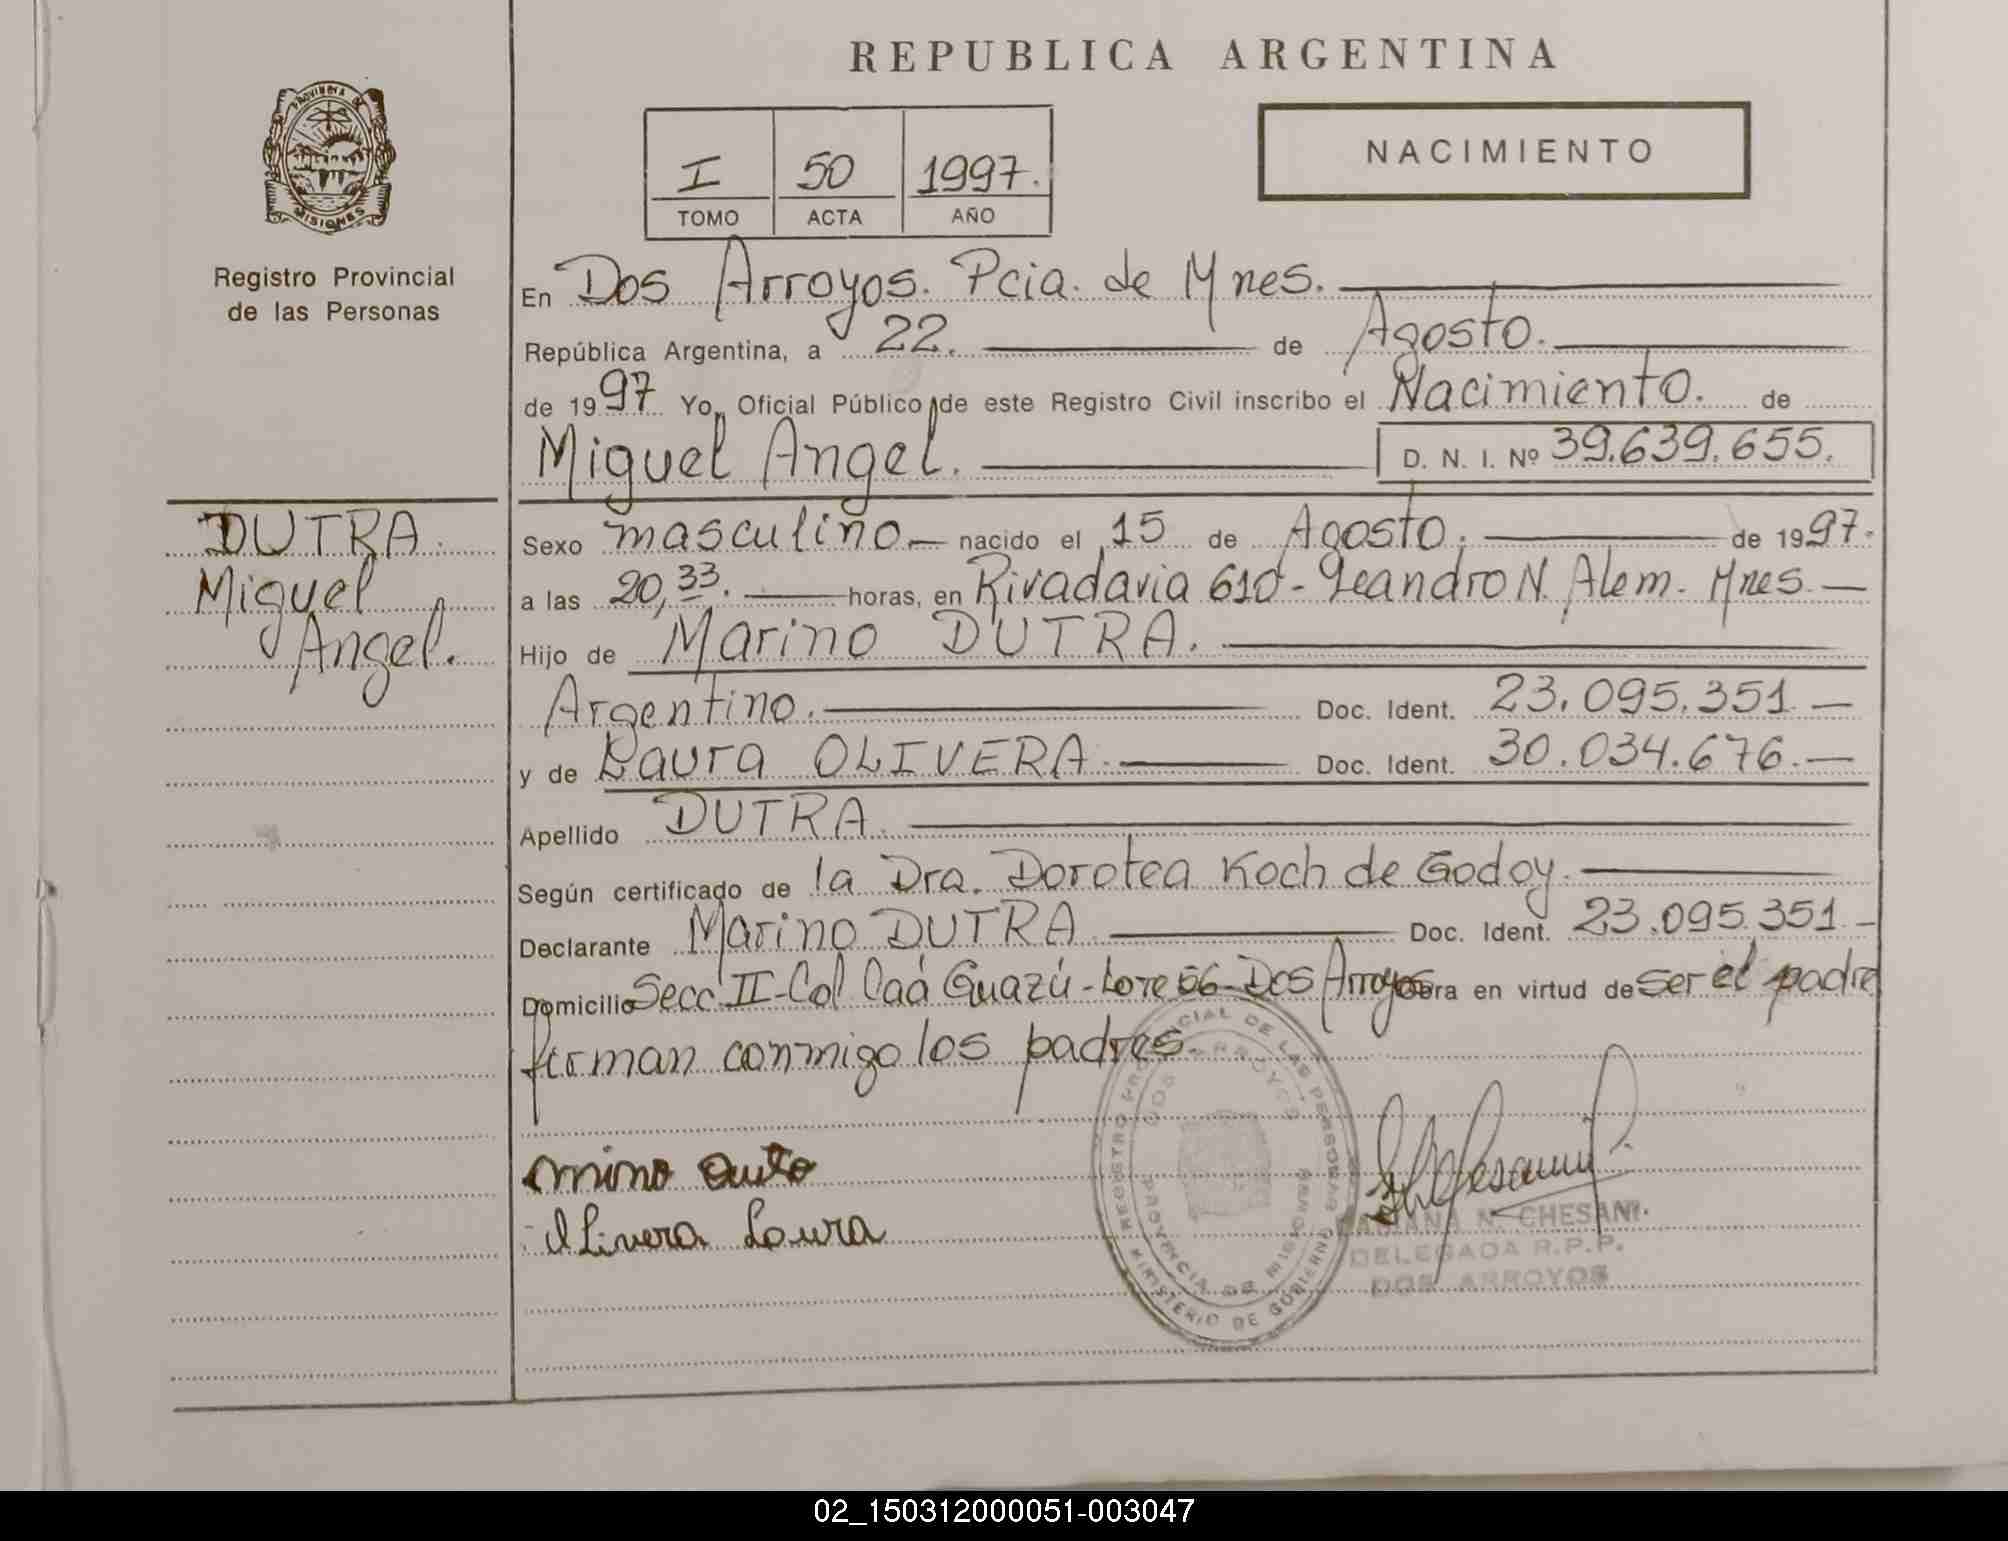 REPUBLICA ARGENTINA
PROVINCIA DE
MISIONES
Registro Provincial
de las Personas
I 50 1997.
TOMO ACTA AÑO
NACIMIENTO
En Dos Arroyos. Pcia. de Mnes.
República Argentina, a 22. de Agosto.
de 1997 Yo, Oficial Público de este Registro Civil inscribo el Nacimiento. de
Miguel Angel. D. N. I. Nº 39.639.655.
DUTRA.
Miguel
Angel.
Sexo masculino.— nacido el 15 de Agosto. de 1997.
a las 20,33. horas, en Rivadavia 610 - Leandro N. Alem. Mnes.—
Hijo de Marino DUTRA.
Argentino. Doc. Ident. 23.095.351.—
y de Laura OLIVERA. Doc. Ident. 30.034.676.—
Apellido DUTRA.
Según certificado de la Dra. Dorotea Koch de Godoy.
Declarante Marino DUTRA. Doc. Ident. 23.095.351.—
Domicilio Secc II-Col Caá Guazú-Lote 56-Dos Arroyos Obra en virtud de ser el padre
firman conmigo los padres.
Olivera Laura
REGISTRO PROVINCIAL DE LAS PERSONAS
DOS ARROYOS
PROVINCIA DE MISIONES
MINISTERIO DE GOBIERNO
FABIANA N. CHESANI.
DELEGADA R.P.P.
DOS ARROYOS
02_150312000051-003047